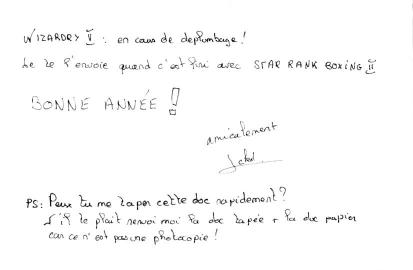 WIZARDRY II : en cours de deplombage !
Je te l'envoie quand c'est fini avec STAR RANK BOXING II
BONNE ANNÉE !
amicalement
PS: Peux tu me taper cette doc rapidement ?
S'il te plait renvoi moi la doc tapée + la doc papier
car ce n'est pas une photocopie !